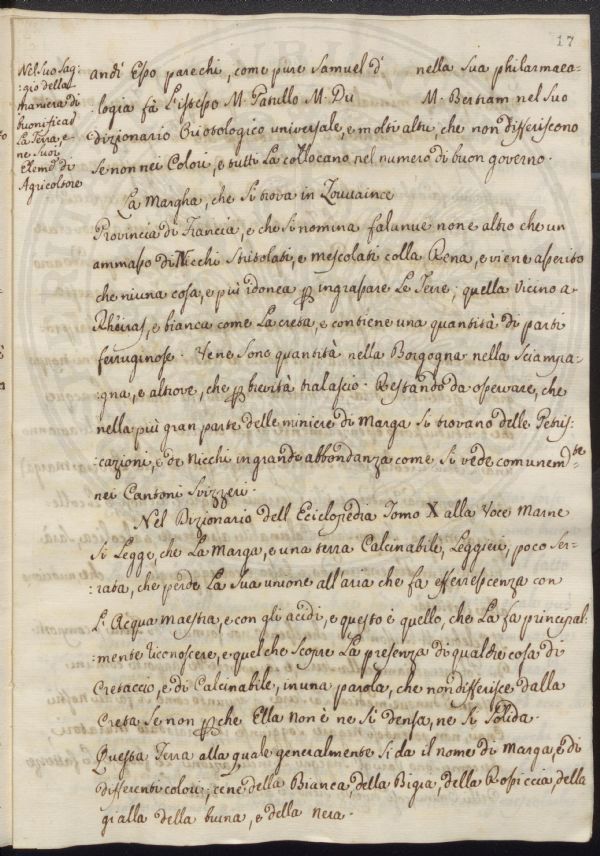 17
Nel suo sag:
:gio della
maniera di
buonificar
La Terra, e
ne suoi
Elemti di
Agricoltore
andi Esso parechi, come pure Samuel d' nella sua philarmaco:
:logia fà l'istesso M. Patullo M. Du M. Bertram nel suo
dizionario Orictologico universale, e molti altri, che non differiscono
se non nei Colori, e tutti La collocano nel numero di buon governo.
La Margha, che si trova in Touraince
Provincia di Francia, e che si nomina falunue non e altro che un
ammasso di Nicchi stritolati, e mescolati colla Rena, e viene asserito
che niuna cosa, e più idonea p ingrassare Le Terre; quella vicino a
Rheiras, e bianca come La creta, e contiene una quantità di parti
ferruginose. Vene sono quantità nella Borgogna nella Sciampa:
:gna, e altrove, che p brevità tralascio. Restando da osservare, che
nella più gran parte delle miniere di Marga si trovano delle Petrif:
:cazioni, e de Nicchi in grande abbondanza come si vede comunemte
nei Cantoni Svizzeri.
Nel Dizionario dell Eciclopedia Tomo X alla Voce Marne
si Legge, che La Marga, e una terra Calcinabile, Leggieri, poco ser:
:rata, che perde La sua unione all'aria che fa efferrescenza con
L'Acqua maestra, e con gli acidi, e questo è quello, che La fa principal:
:mente riconoscere, e quel che scopre La presenza di qualche cosa di
Cretaccio, e di Calcinabile, in una parola, che non differisce dalla
Creta se non pche Ella non è ne si densa, ne si solida.
Questa Terra alla quale generalmente si da il nome di Marga, è di
differenti colori; cene della Bianca, della Bigia, della Rossiccia, della
gialla della bruna, e della nera.